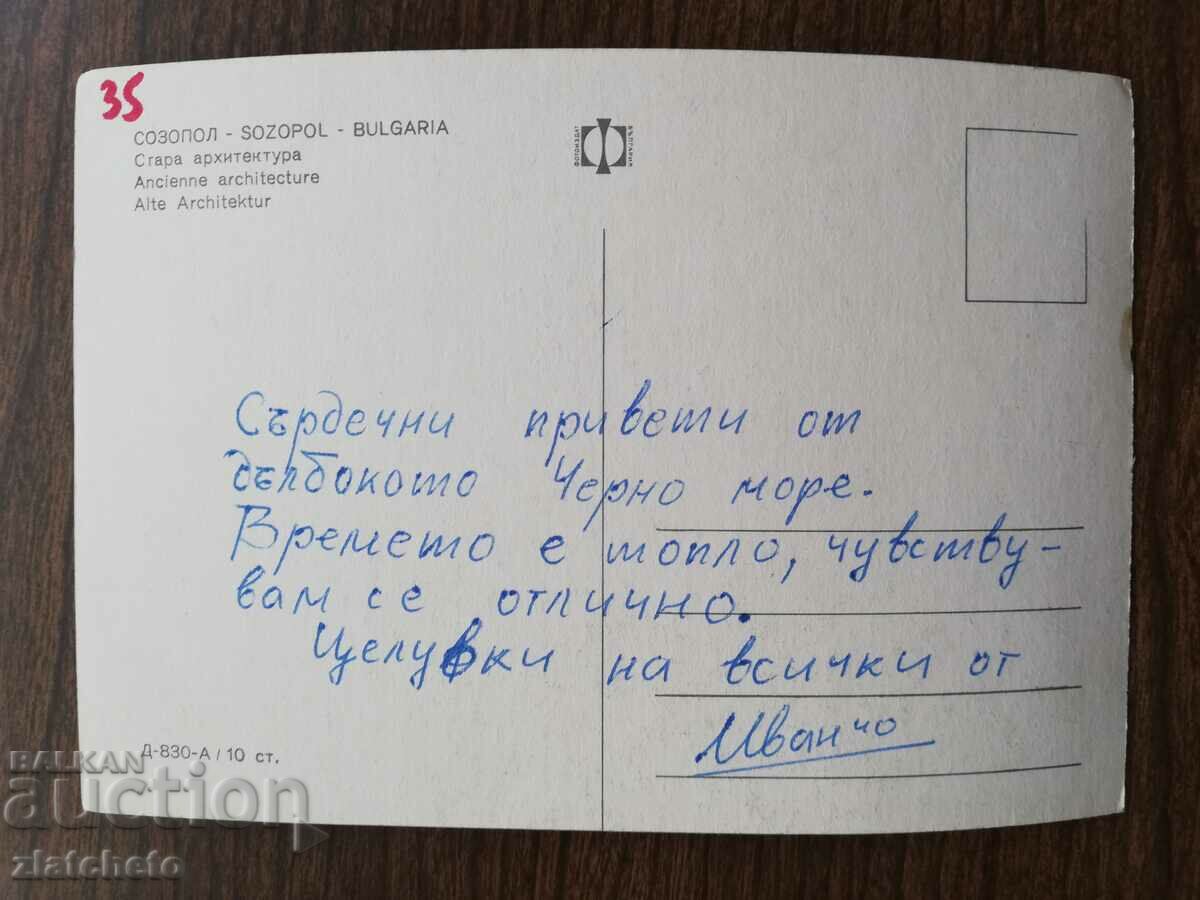 35
СОЗОПОЛ - SOZOPOL - BULGARIA
Стара архитектура
Ancienne architecture
Alte Architektur
ФОТОИЗДАТ
БЪЛГАРИЯ
Сърдечни привети от
дълбокото Черно море.
Времето е топло, чувству-
вам се отлично.
Целувки на всички от
Иванчо
Д-830-А / 10 ст.
BALKAN
auction
zlatcheto